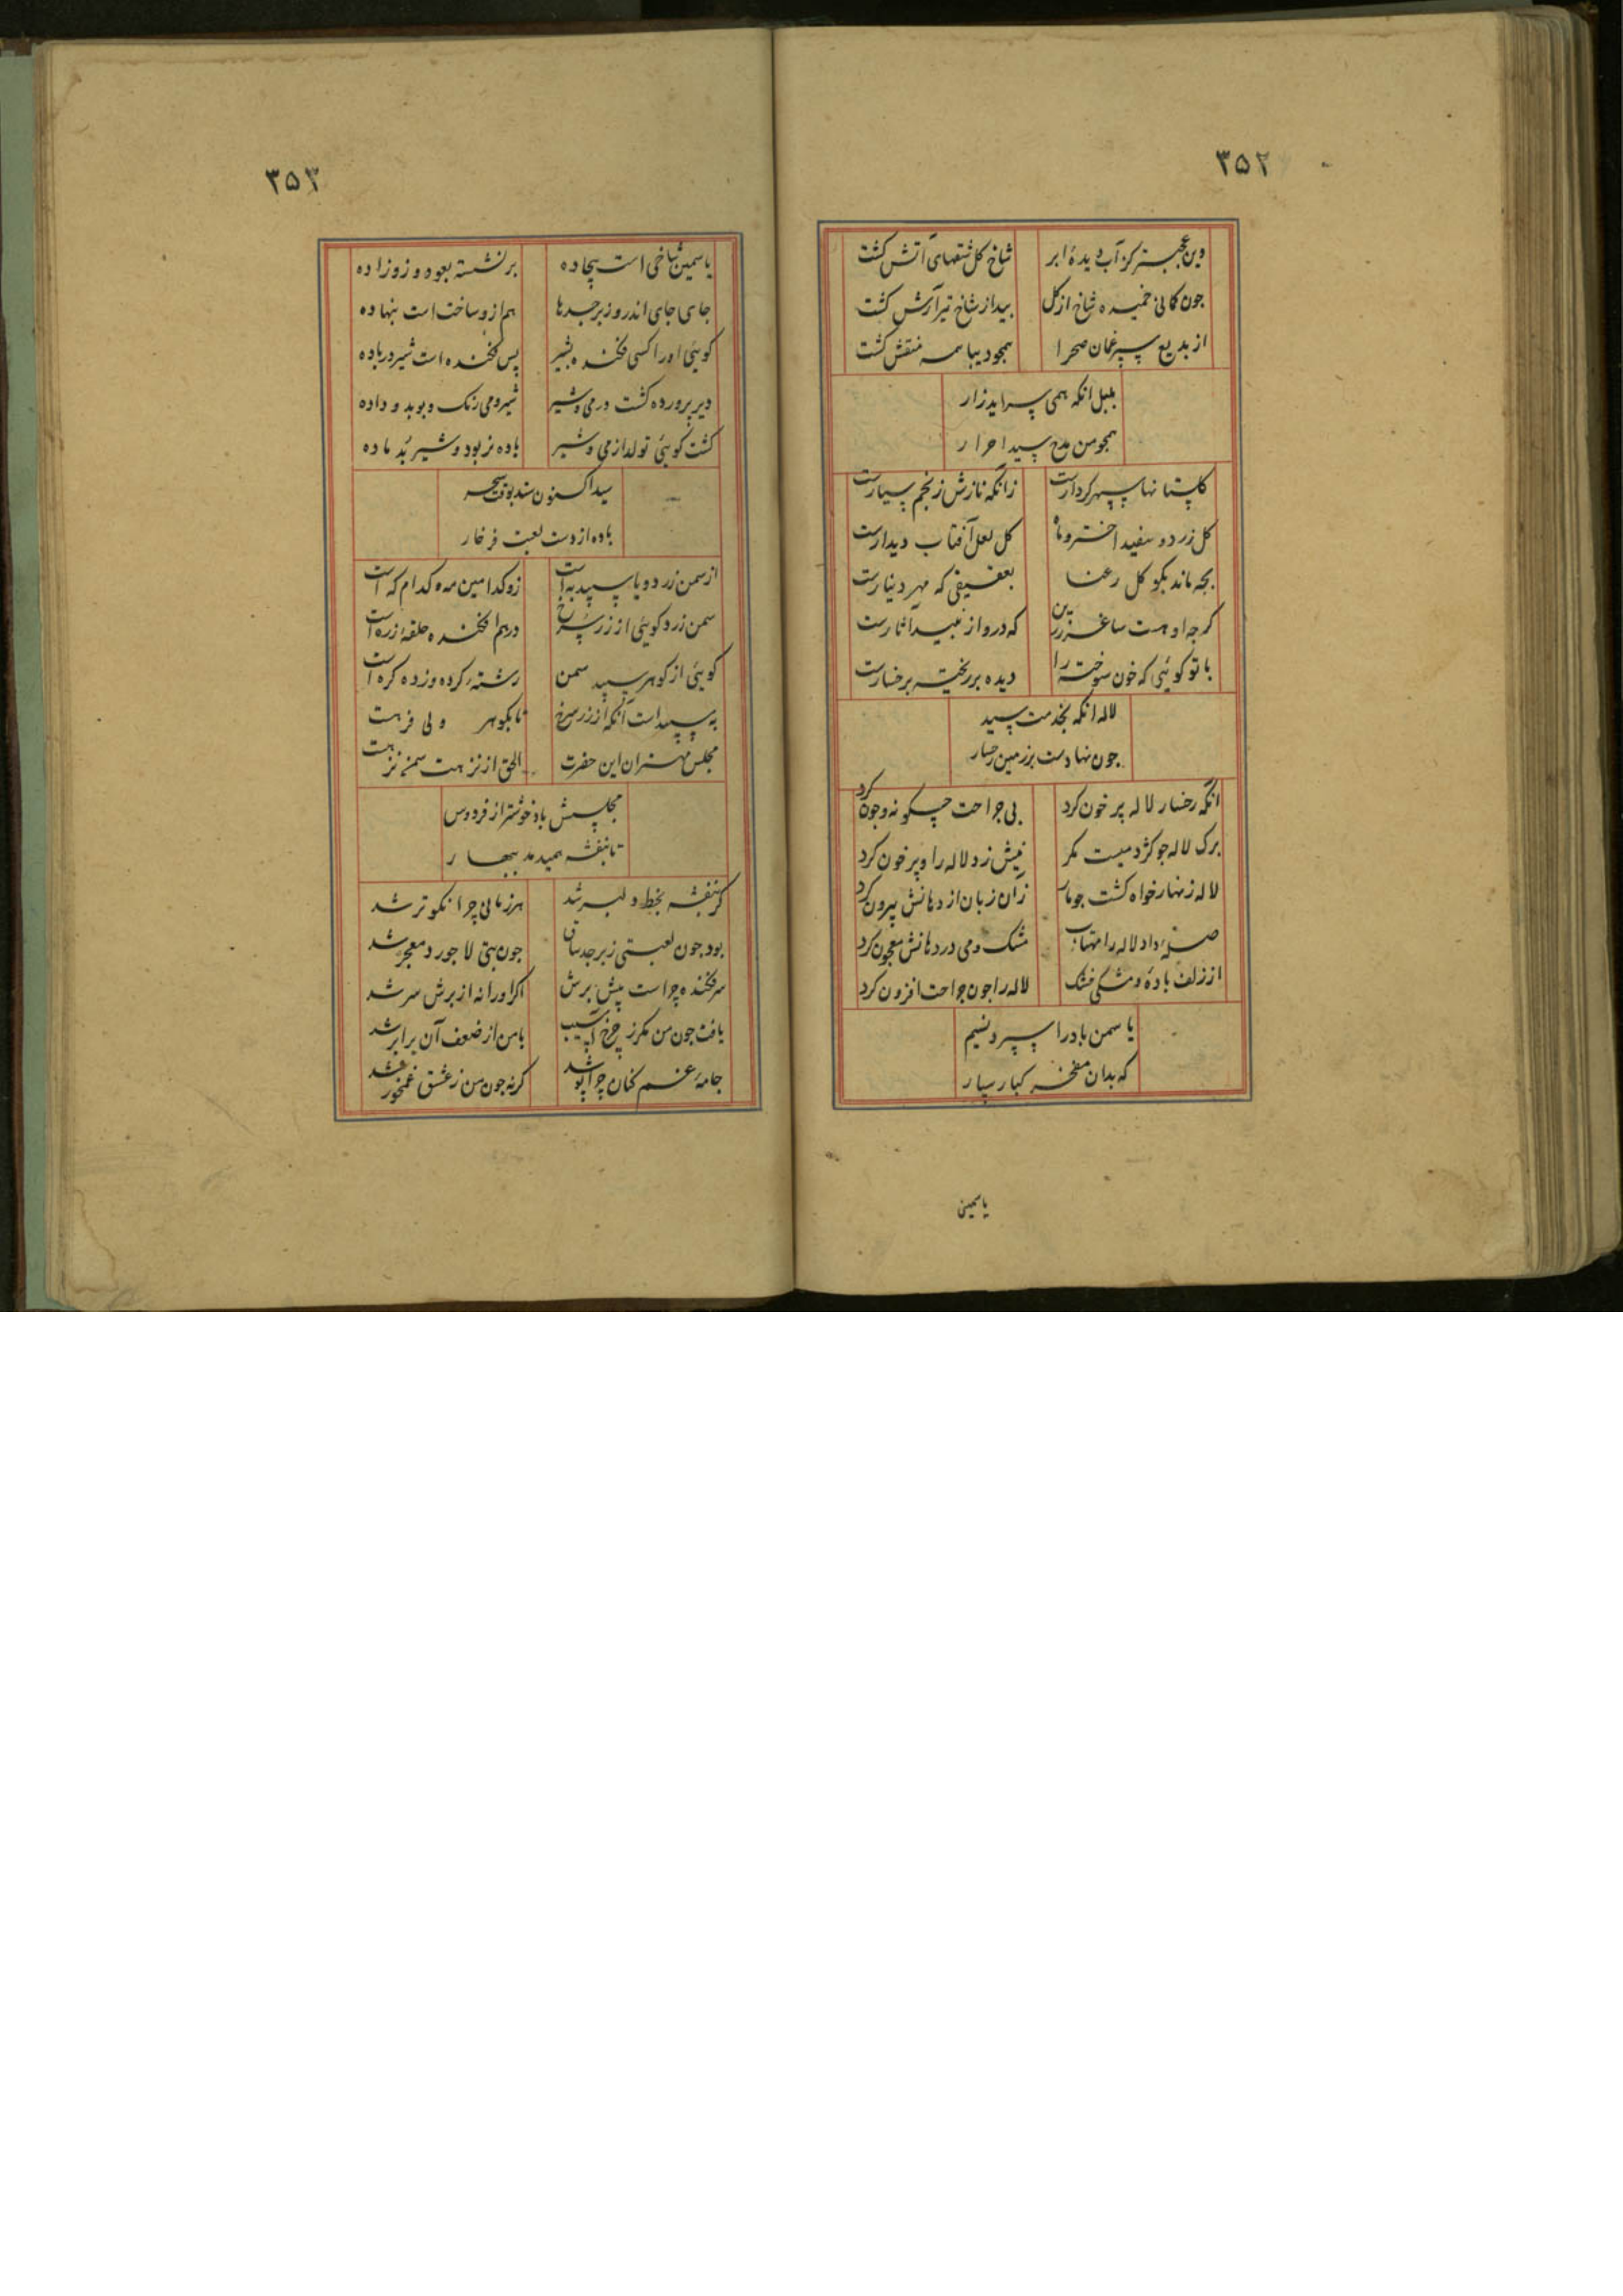 ۳۵۲
وین عجبتر کز آب دیدهٔ ابر شاخ کل شعلهای آتش کشت
جون کمانی خمیده شاخ از کل بید از شاخ تیر آرش کشت
از بدیع سپرغمان صحرا همجو دیبا همه منقش کشت
بلبل انکه همی سراید زار
همجو من مدح سید احرار
کلستانها سپهر کردارست زانکه نازش ز نجم سیارست
کل زرد و سفید اختر و ماه کل لعل آفتاب دیدارست
بجه ماند بکو کل رعنا بعقیقی که مهر دینارست
کرجه او هست ساغر زرین که درو از نبید آثارست
با تو کوئی که خون سوخته را دیده بر ریخته برخسارست
لاله انکه بخدمت سید
جون نهادست بر زمین رخسار
انکه رخسار لاله پر خون کرد بی جراحت چکونه وجون کرد
برک لاله جو کژدمیست مکر نیش زد لاله را و پر خون کرد
لاله زنهار خواه کشت جو مار زان زبان از دهانش بیرون کرد
داد لاله را مهتاب مشک ومی در دهانش معجون کرد
از زلف باده و مشکی خشک لاله را جون جراحت افزون کرد
یاسمن باد را سپرد نسیم
که بدان مفخر کبار سپار
یاسمین
۳۵۳
یاسمین شاخی است بیجاده بر نشسته بعود و زو زاده
جای جای اندرو زبرجدها هم ازو ساخت است بنهاده
کوئی او را کسی فکنده بشیر پس فکنده است شیر در باده
دیر پرورده کشت در می و شیر شیر و می رنک و بوبد و داده
کشت کوئی تولد از می و شیر باده نر بود و شیر بد ماده
سید اکنون ستد بوقت سحر
باده از دست لعبت فرخار
از سمن زرد و یا سپید به است زو کدامین مه و کدام که است
سمن زرد کوئی از زر سرخ درهم افکنده حلقهٔ زره است
کوئی از کوهر سپید سمن رشتهٔ کرده وزده کره است
به سپید است آنکه از زر سرخ تا بکوهر ولی فرهست
مجلس مهتران این حضرت الحق از نزهت سمن نزهست
مجلسش باد خوشتر از فردوس
تا بنفشه همیدمد ببهار
کر بنفشه بخط دلبر شد هر زمانی چرا نکوتر شد
بود جون لعبتی زبرجد ساق جون بتی لاجورد معجر شد
سر فکنده چراست پیش برش اکر او را نه از برش سر شد
یافت جون من مکر ز چرخ آسیب با من از ضعف آن برابر شد
جامهٔ غم کنان چرا پوشد کرنه جون من ز عشق غمخور شد